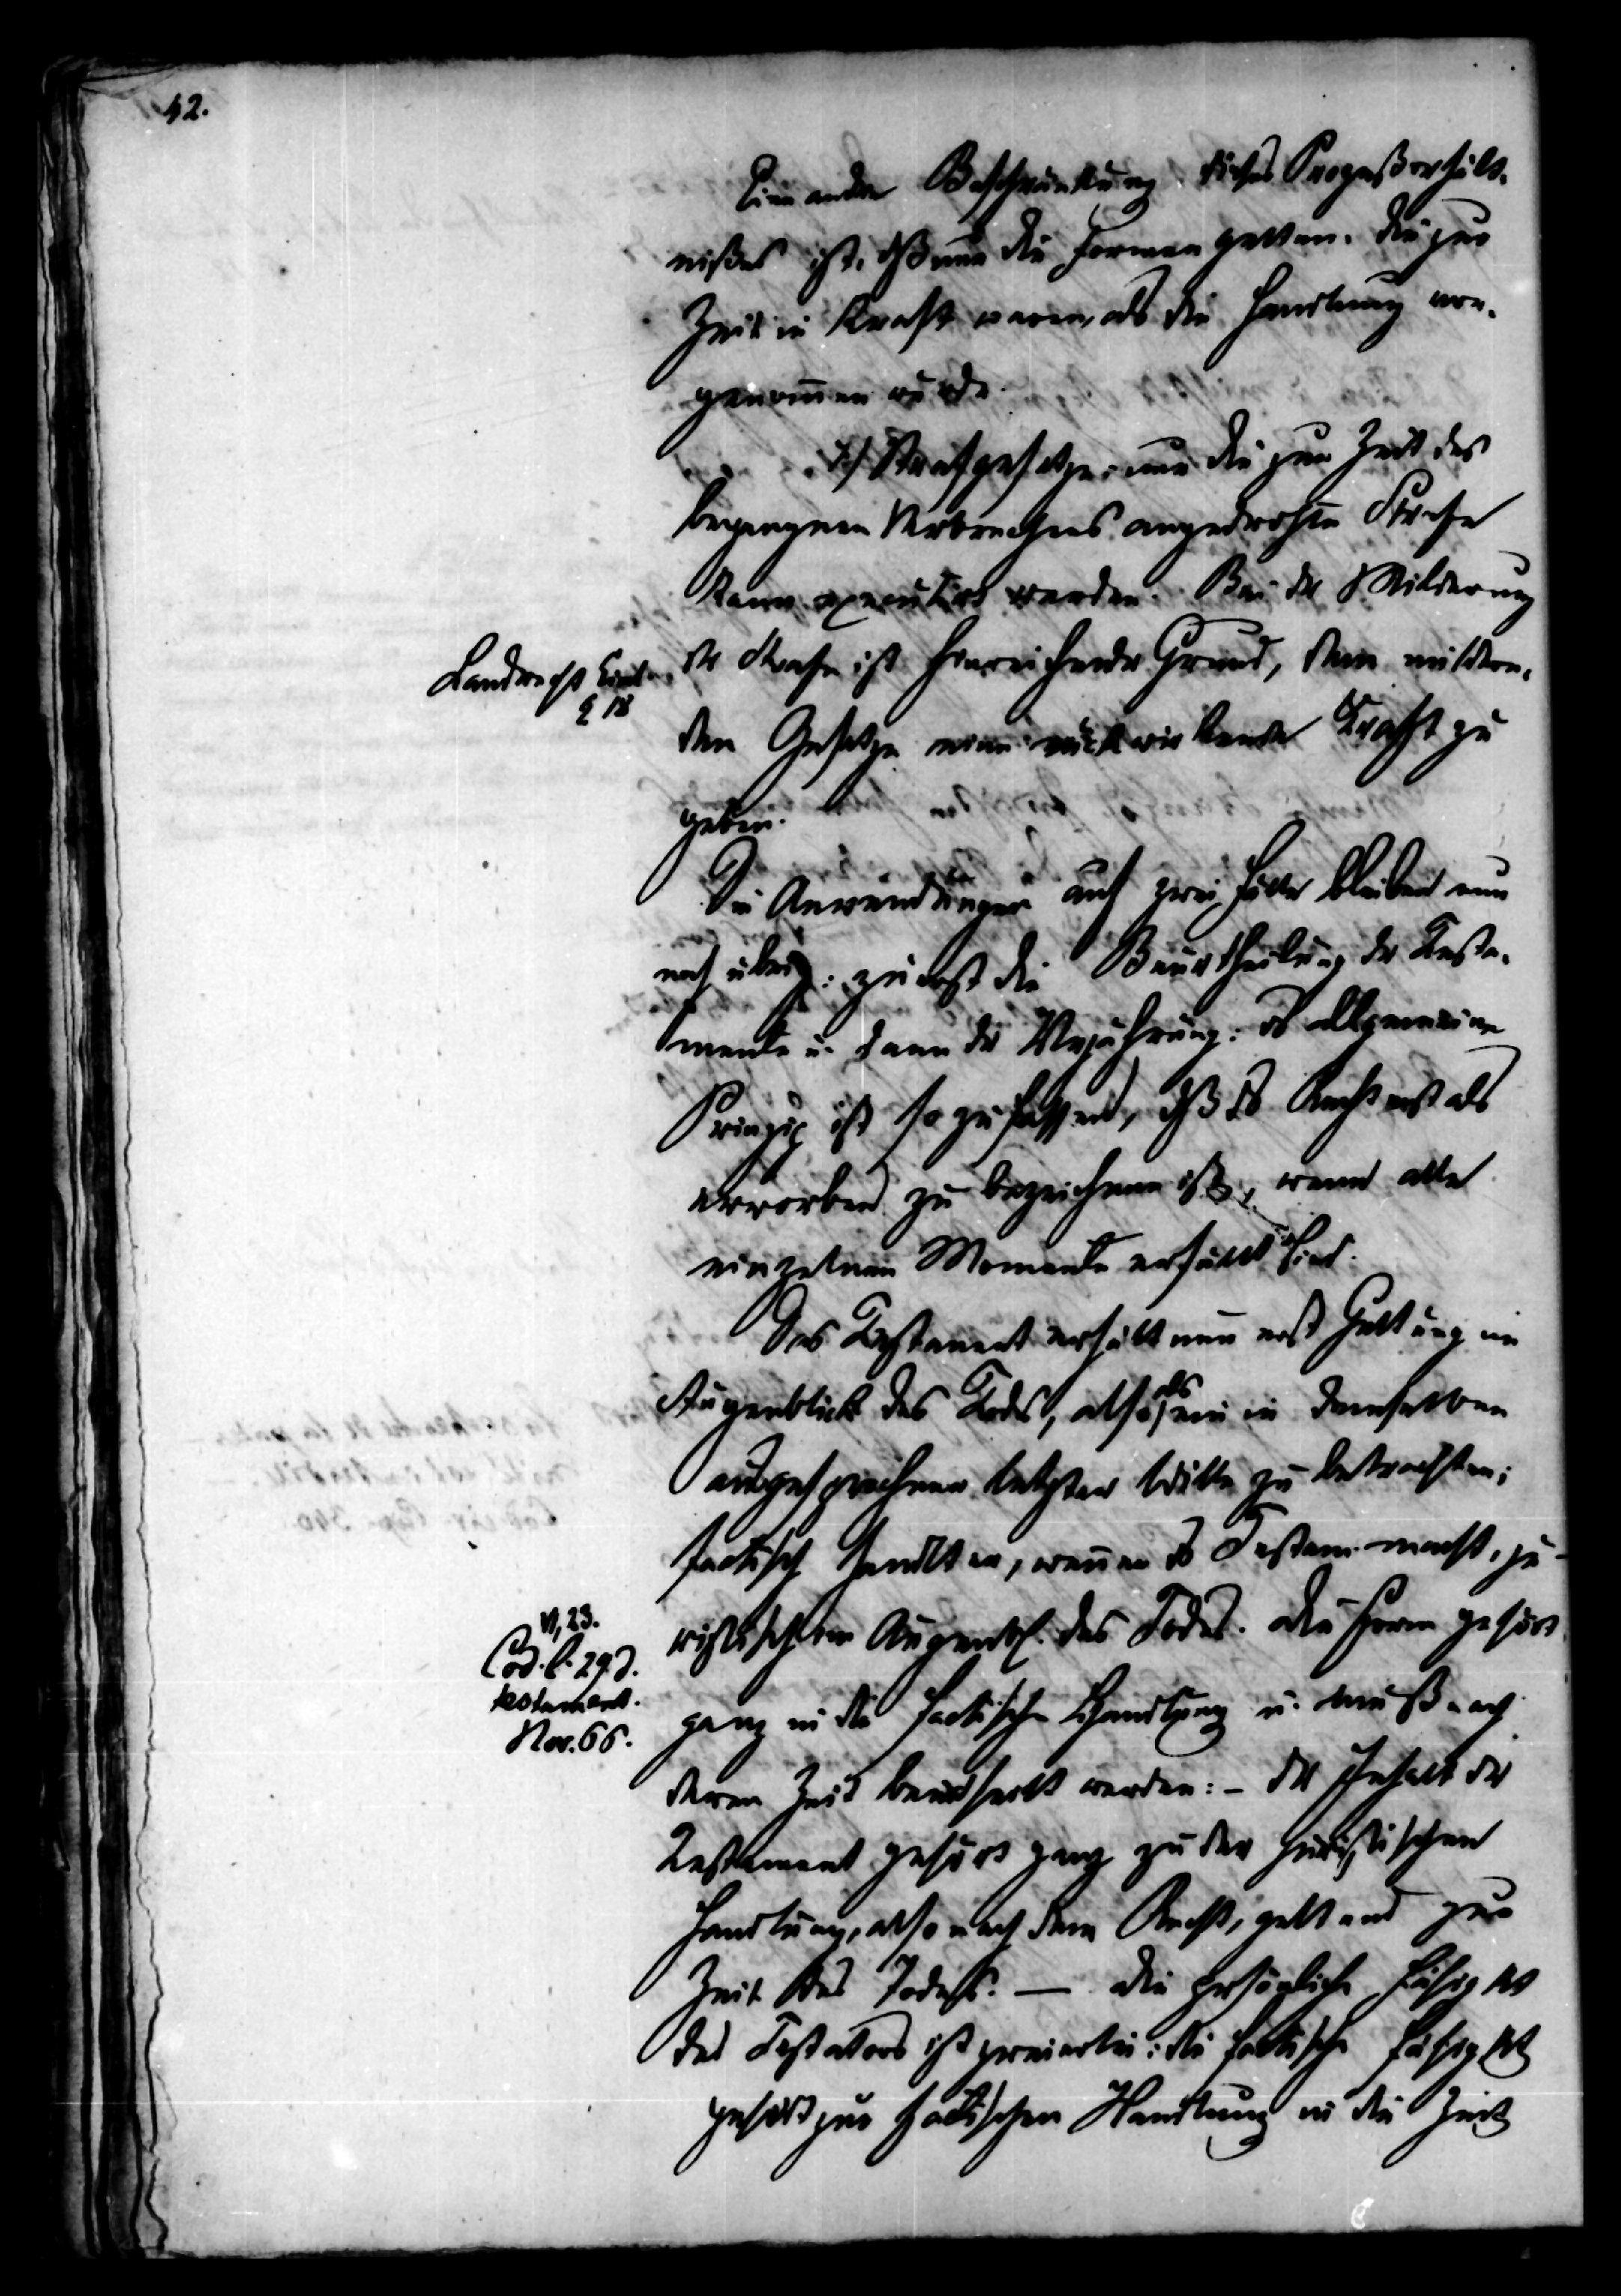 42.
Eine andre Beschränkung dieses Prozeßverhält-
nißes ist, dß nur die Formen gelten, die zur
Zeit in Kraft waren, als die Handlung vor-
genom̄en wurde.
Strafgesetze: nur die zur Zeit des
begangenen Verbrechens angedrohte Strafe
kann executirt werden. Bei der Milderung
der Strafe ist hinreichender Grund, dem mildern-
den Gesetze eine rückwirkende Kraft zu
geben.
Landrecht Einl.
§ 18
Die Anwendungen auf zwei Fälle bleiben nun
noch übrig: zuerst die Beurtheilung der Testa-
mente u. dann der Verjährung. Ds allgemeine
Prinzip ist so zu fassen, dß ds Recht erst als
erworben zu bezeichnen ist, wenn alle
einzelnen Momente erfüllt sind.
Das Testament erhält nun erst Geltung im
Augenblick des Todes, also als ein in demselben
ausgesprochener letzter Wille zu betrachten;
factisch handelt er, wenn er ds Testam. macht, ju-
ristisch im Augenbl. des Todes. Die Form gehört
ganz in die factische Handlung u. muß nach
deren Zeit beurtheilt werden: – der Inhalt der
Testament gehört ganz zu der juristischen
Handlung, also nach dem Recht, geltend zur
Zeit des Todes. — Die persönliche Fähigkt
des Testators ist zweierlei: die factische Fähigkt
gehört zur factischen Handlung in die Zeit
VI, 23.
Cod. l. 29 d.
testament.
Nov. 66.